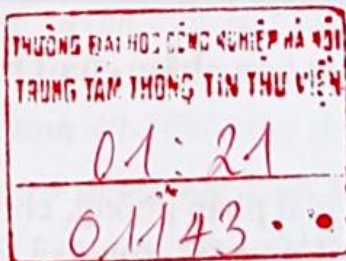 TRƯỜNG ĐẠI HỌC CÔNG NGHIỆP HÀ NỘI
TRUNG TÂM THÔNG TIN THƯ VIỆN
01:21
01143